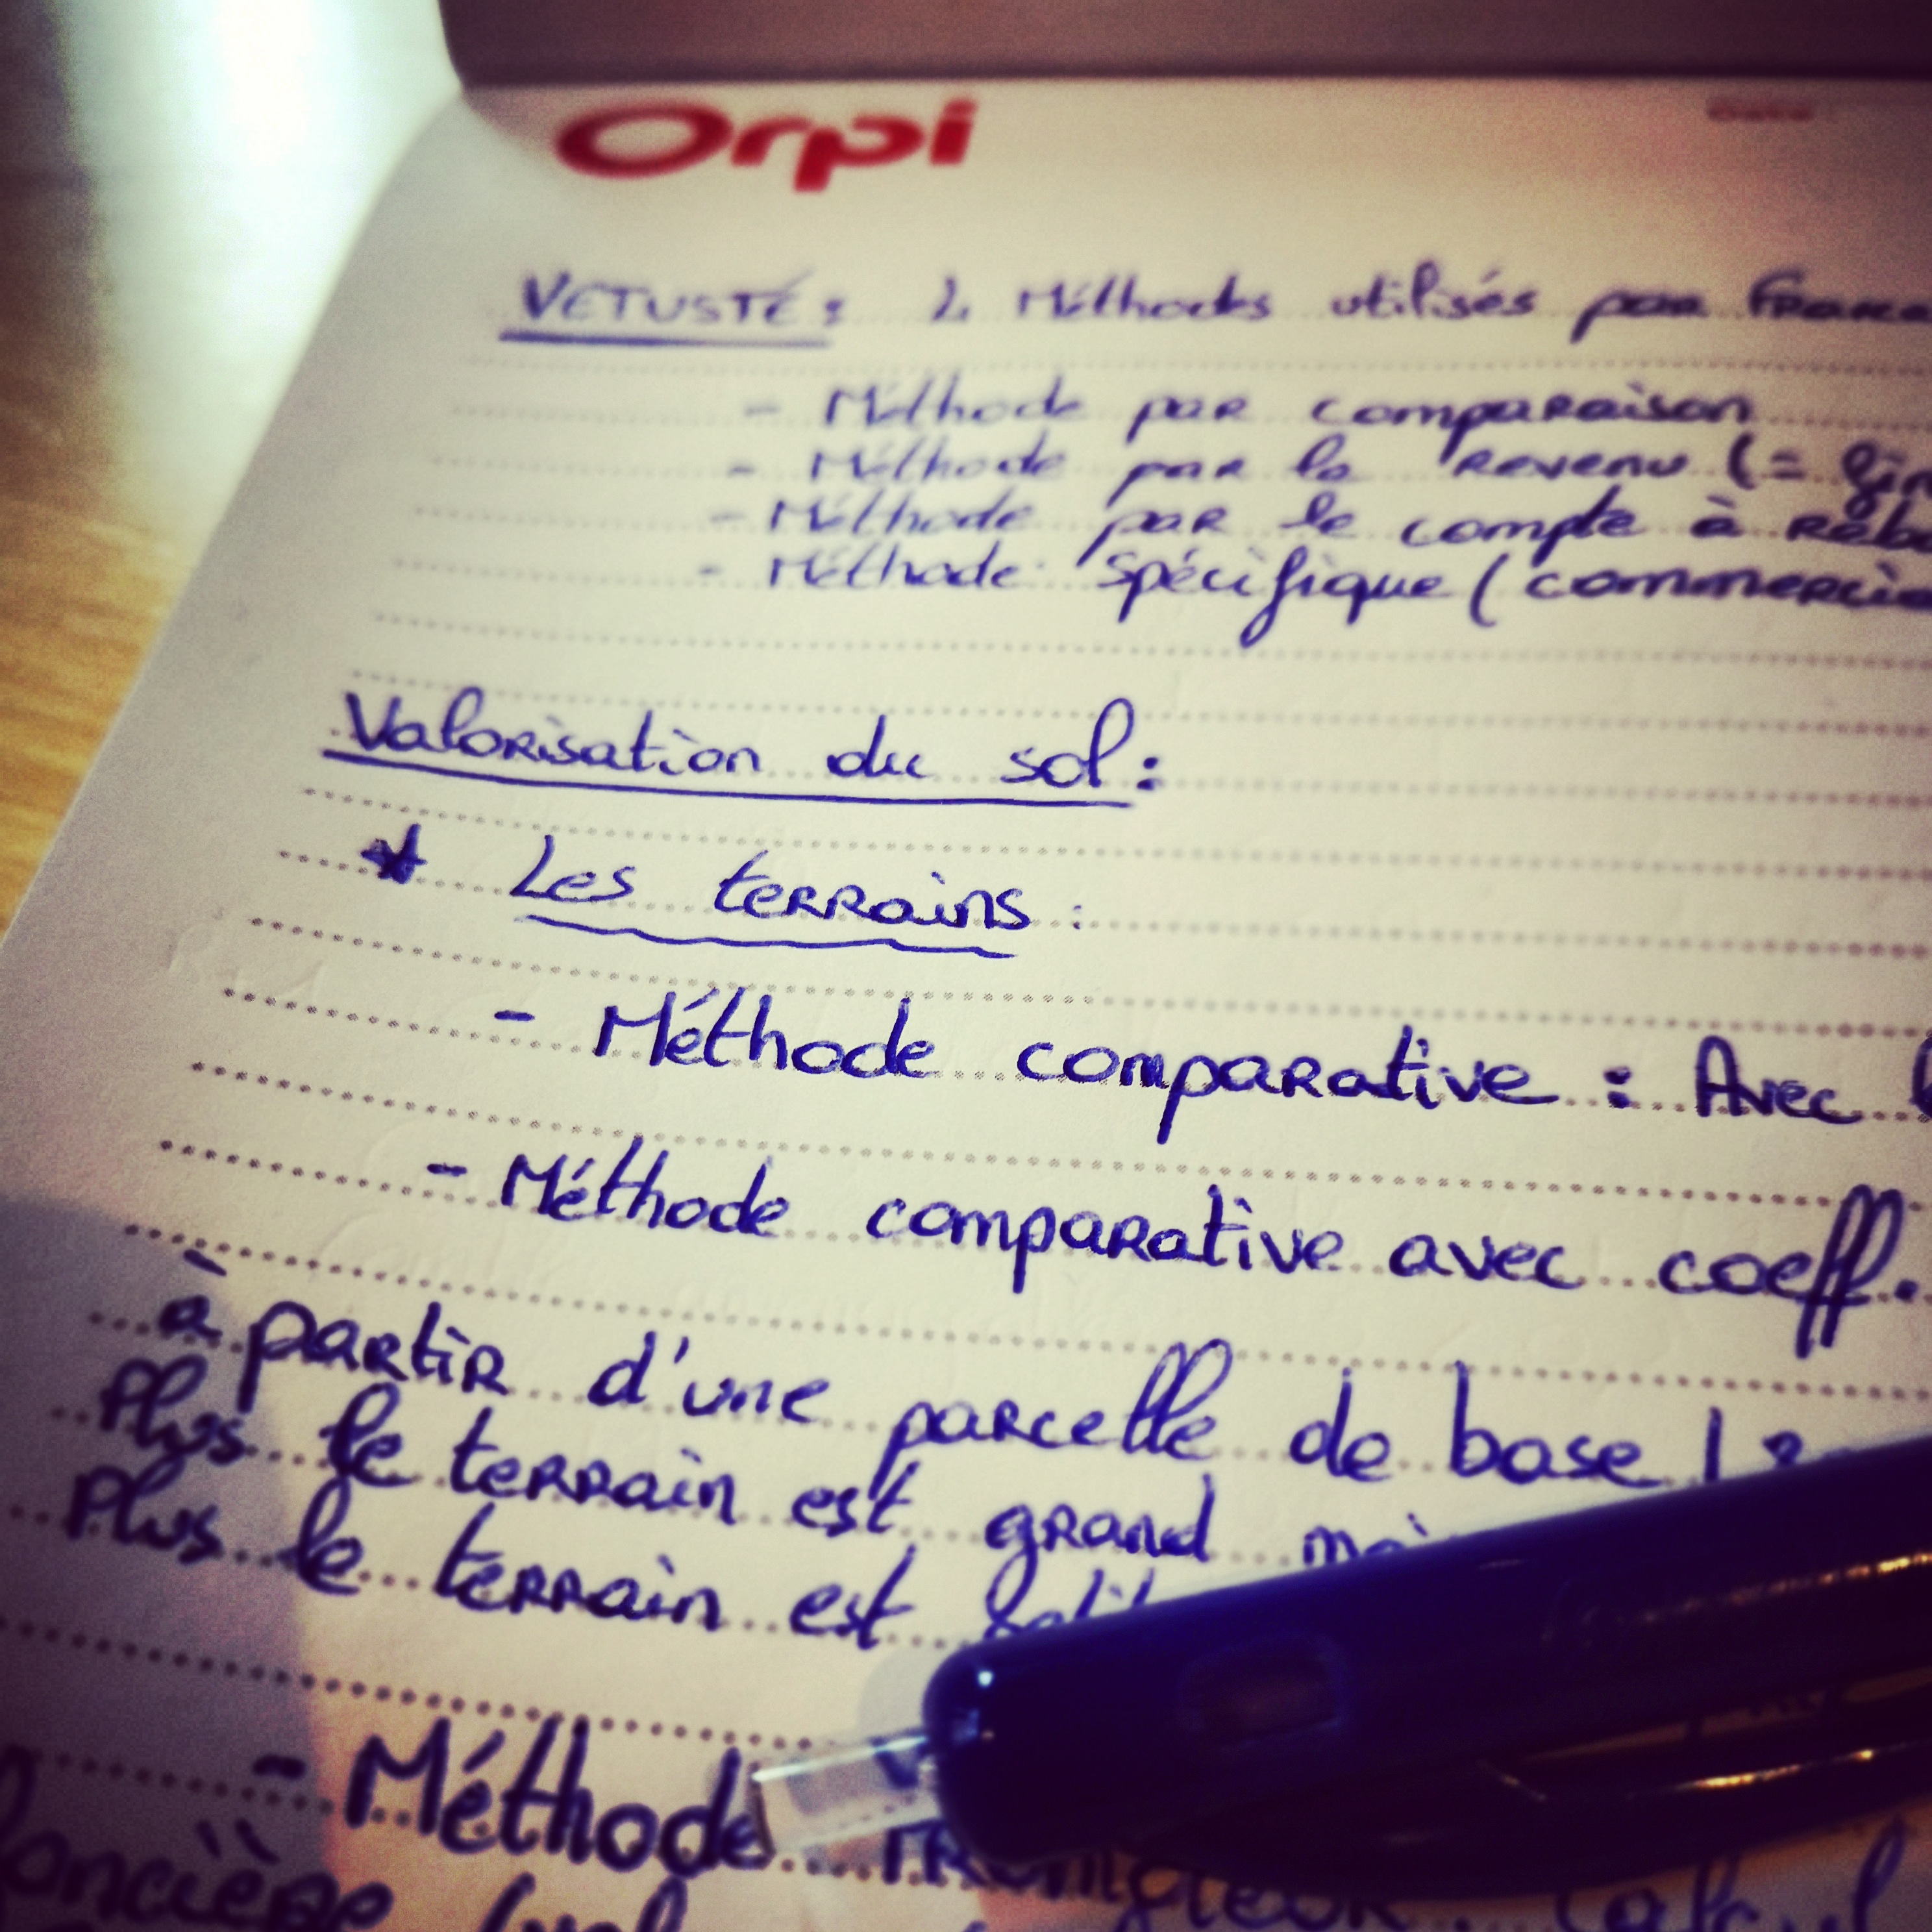 Orpi
Date
VETUSTÉ: 4 Méthodes utilisés par France
- Méthode par comparaison
- Méthode par le revenu (=
- Méthode par le compte à
- Méthode spécifique (
Valorisation du sol:
* Les terrains:
- Méthode comparative: Avec
- Méthode comparative avec coeff.
à partir d'une parcelle de base
Plus le terrain est grand
Plus le terrain est petit
- Méthode
foncière